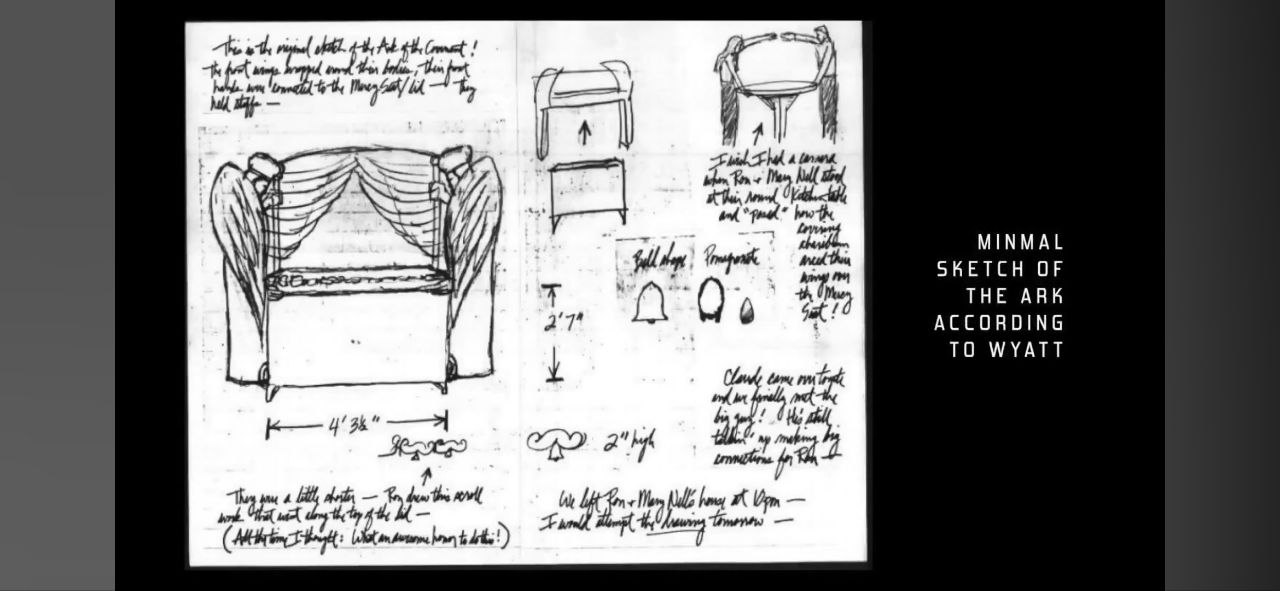 This is the original sketch of the Ark of the Covenant!
The front wings wrapped around their bodies, their front
hands were connected to the Mercy Seat/Lid — They
held staffs —
I wish I had a camera
when Ron + Mary Nell stood
at their round kitchen table
and "posed" how the
covering
cherubim
arced their
wings over
the Mercy
Seat!
Bell shape
Pomegranate
2' 7"
4' 3½"
2" high
Claude came over tonite
and we finally met the
big guy! He's still
talkin' up making big
connections for Ron —
They were a little shorter — Ron drew this scroll
work that went along the top of the lid —
(All the time I thought: What an awesome honor to do this!)
We left Ron + Mary Nell's house at 10pm —
I would attempt the drawing tomorrow —
MINMAL
SKETCH OF
THE ARK
ACCORDING
TO WYATT